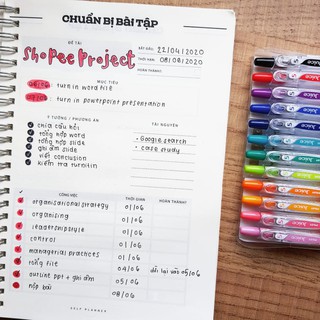 CHUẨN BỊ BÀI TẬP
ĐỀ TÀI
Shopee Project
BẮT ĐẦU: 22/04/2020
THỜI HẠN: 08/06/2020
HOÀN THÀNH:
MỤC TIÊU
turn in word file
turn in powerpoint presentation
Ý TƯỞNG / PHƯƠNG ÁN
TÀI NGUYÊN
chia câu hỏi
tổng hợp word
tổng hợp slide
ghi âm slide
viết conclusion
kiểm tra turnitin
• Google search
• case study
CÔNG VIỆC THỜI GIAN HOÀN THÀNH
organisational strategy 01/06
organising 01/06
leadership style 01/06
control 01/06
managerial practices 01/06
tổng file 04/06 dời lại vào 05/06
outline ppt + ghi âm 05/06
nộp bài 08/06
SELF PLANNER
Juice
Juice
Juice
Juice
Juice
Juice